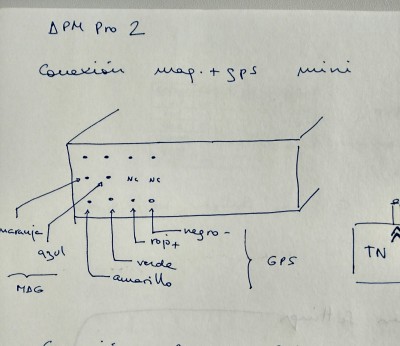 APM Pro 2
Conexión mag. + gps mini
NC NC
naranja
azul
negro -
rojo +
verde
amarillo
MAG
GPS
TN